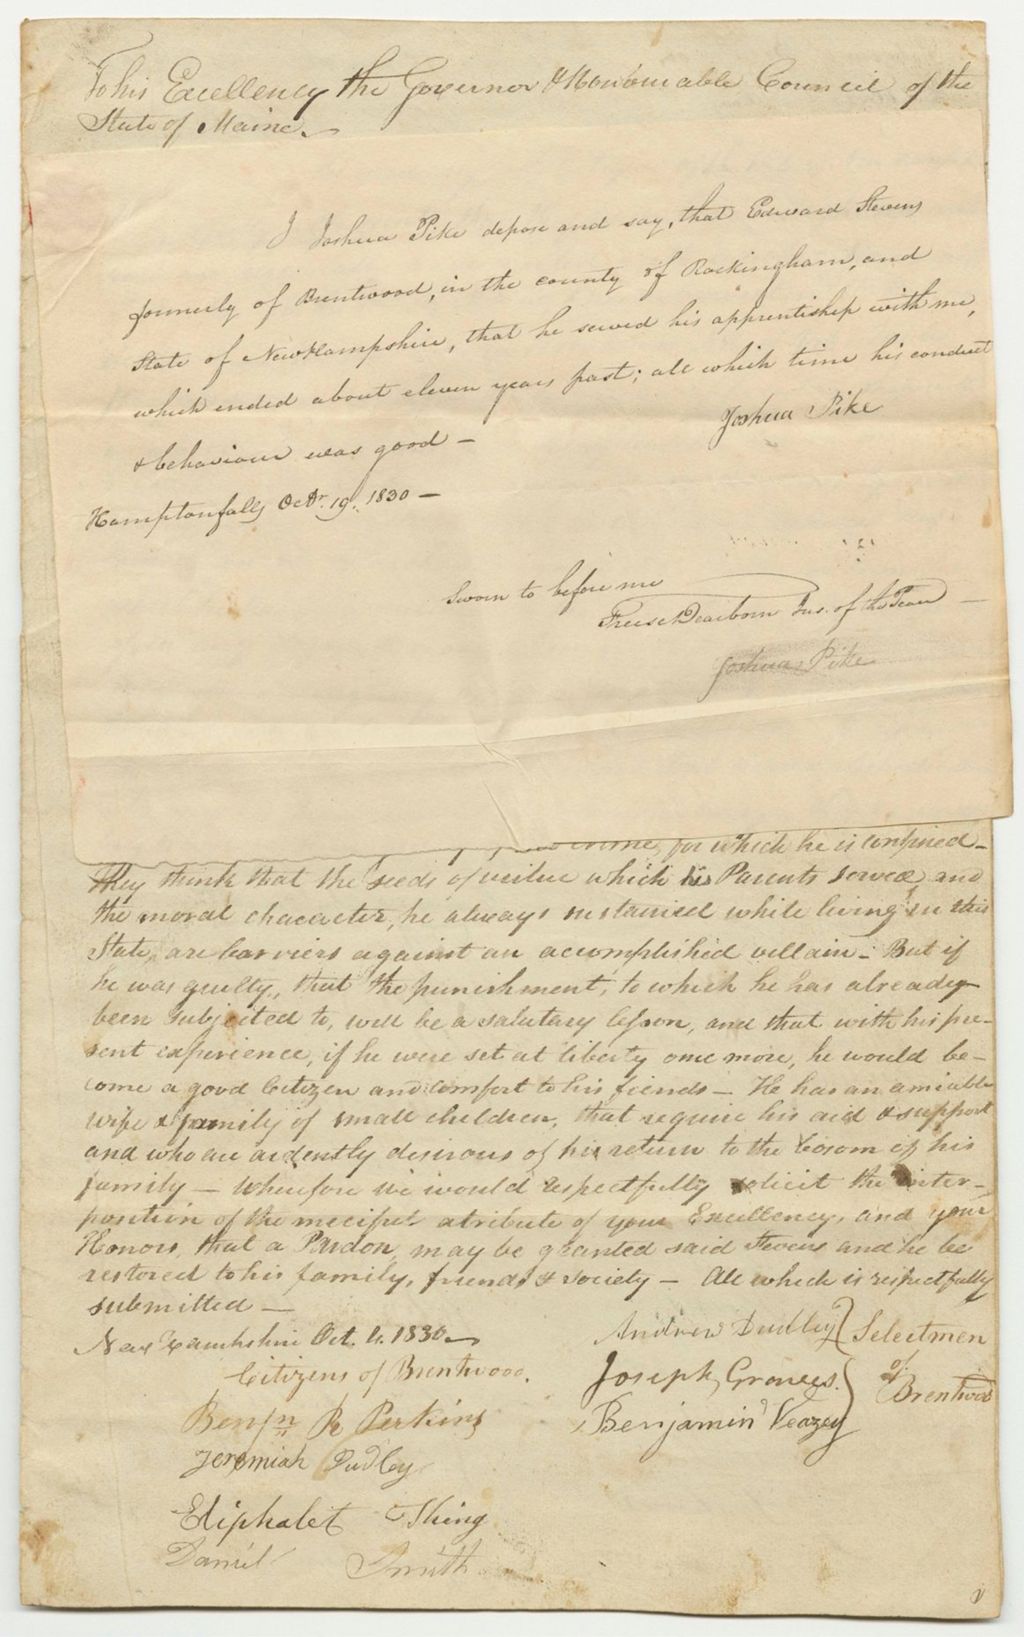 To his Excellency the Governor & Honourable Council of the
State of Maine.
I Joshua Pike depose and say, that Edward Stevens
formerly of Brentwood, in the county of Rockingham, and
State of NewHampshire, that he served his apprentiship with me,
which ended about eleven years past; all which time his conduct
& behaviour was good —
Joshua Pike
Hamptonfalls Octr. 19. 1830 —
Sworn to before me
Freese Dearborn Jus. of the Peace —
Joshua Pike
crime, for which he is confined -
They think that the seeds of virtue which his Parents sowed and
the moral character, he always sustained while living in this
State, are barriers against an accomplished villain - But if
he was guilty, that the punishment, to which he has already
been subjected to, will be a salutary lesson, and that with his pre-
sent experience, if he were set at liberty once more, he would be-
come a good Citizen and comfort to his friends — He has an amiable
wife & family of small children, that require his aid & support
and who are ardently desirous of his return to the bosom of his
family — Wherefore we would respectfully solicit the inter-
position of the merciful atribute of your Excellency, and your
Honors, that a Pardon may be granted said Stevens and he be
restored to his family, friends & society — All which is respectfully
submitted —
New Hampshire Oct. 4. 1830 —
Andrew Dudley } Selectmen
Citizens of Brentwood.
Joseph Graves. } of
Brentwood
Benjn R Perkins
Benjamin Veazey
Jeremiah Dudley
Eliphalet Thing
Daniel Smith